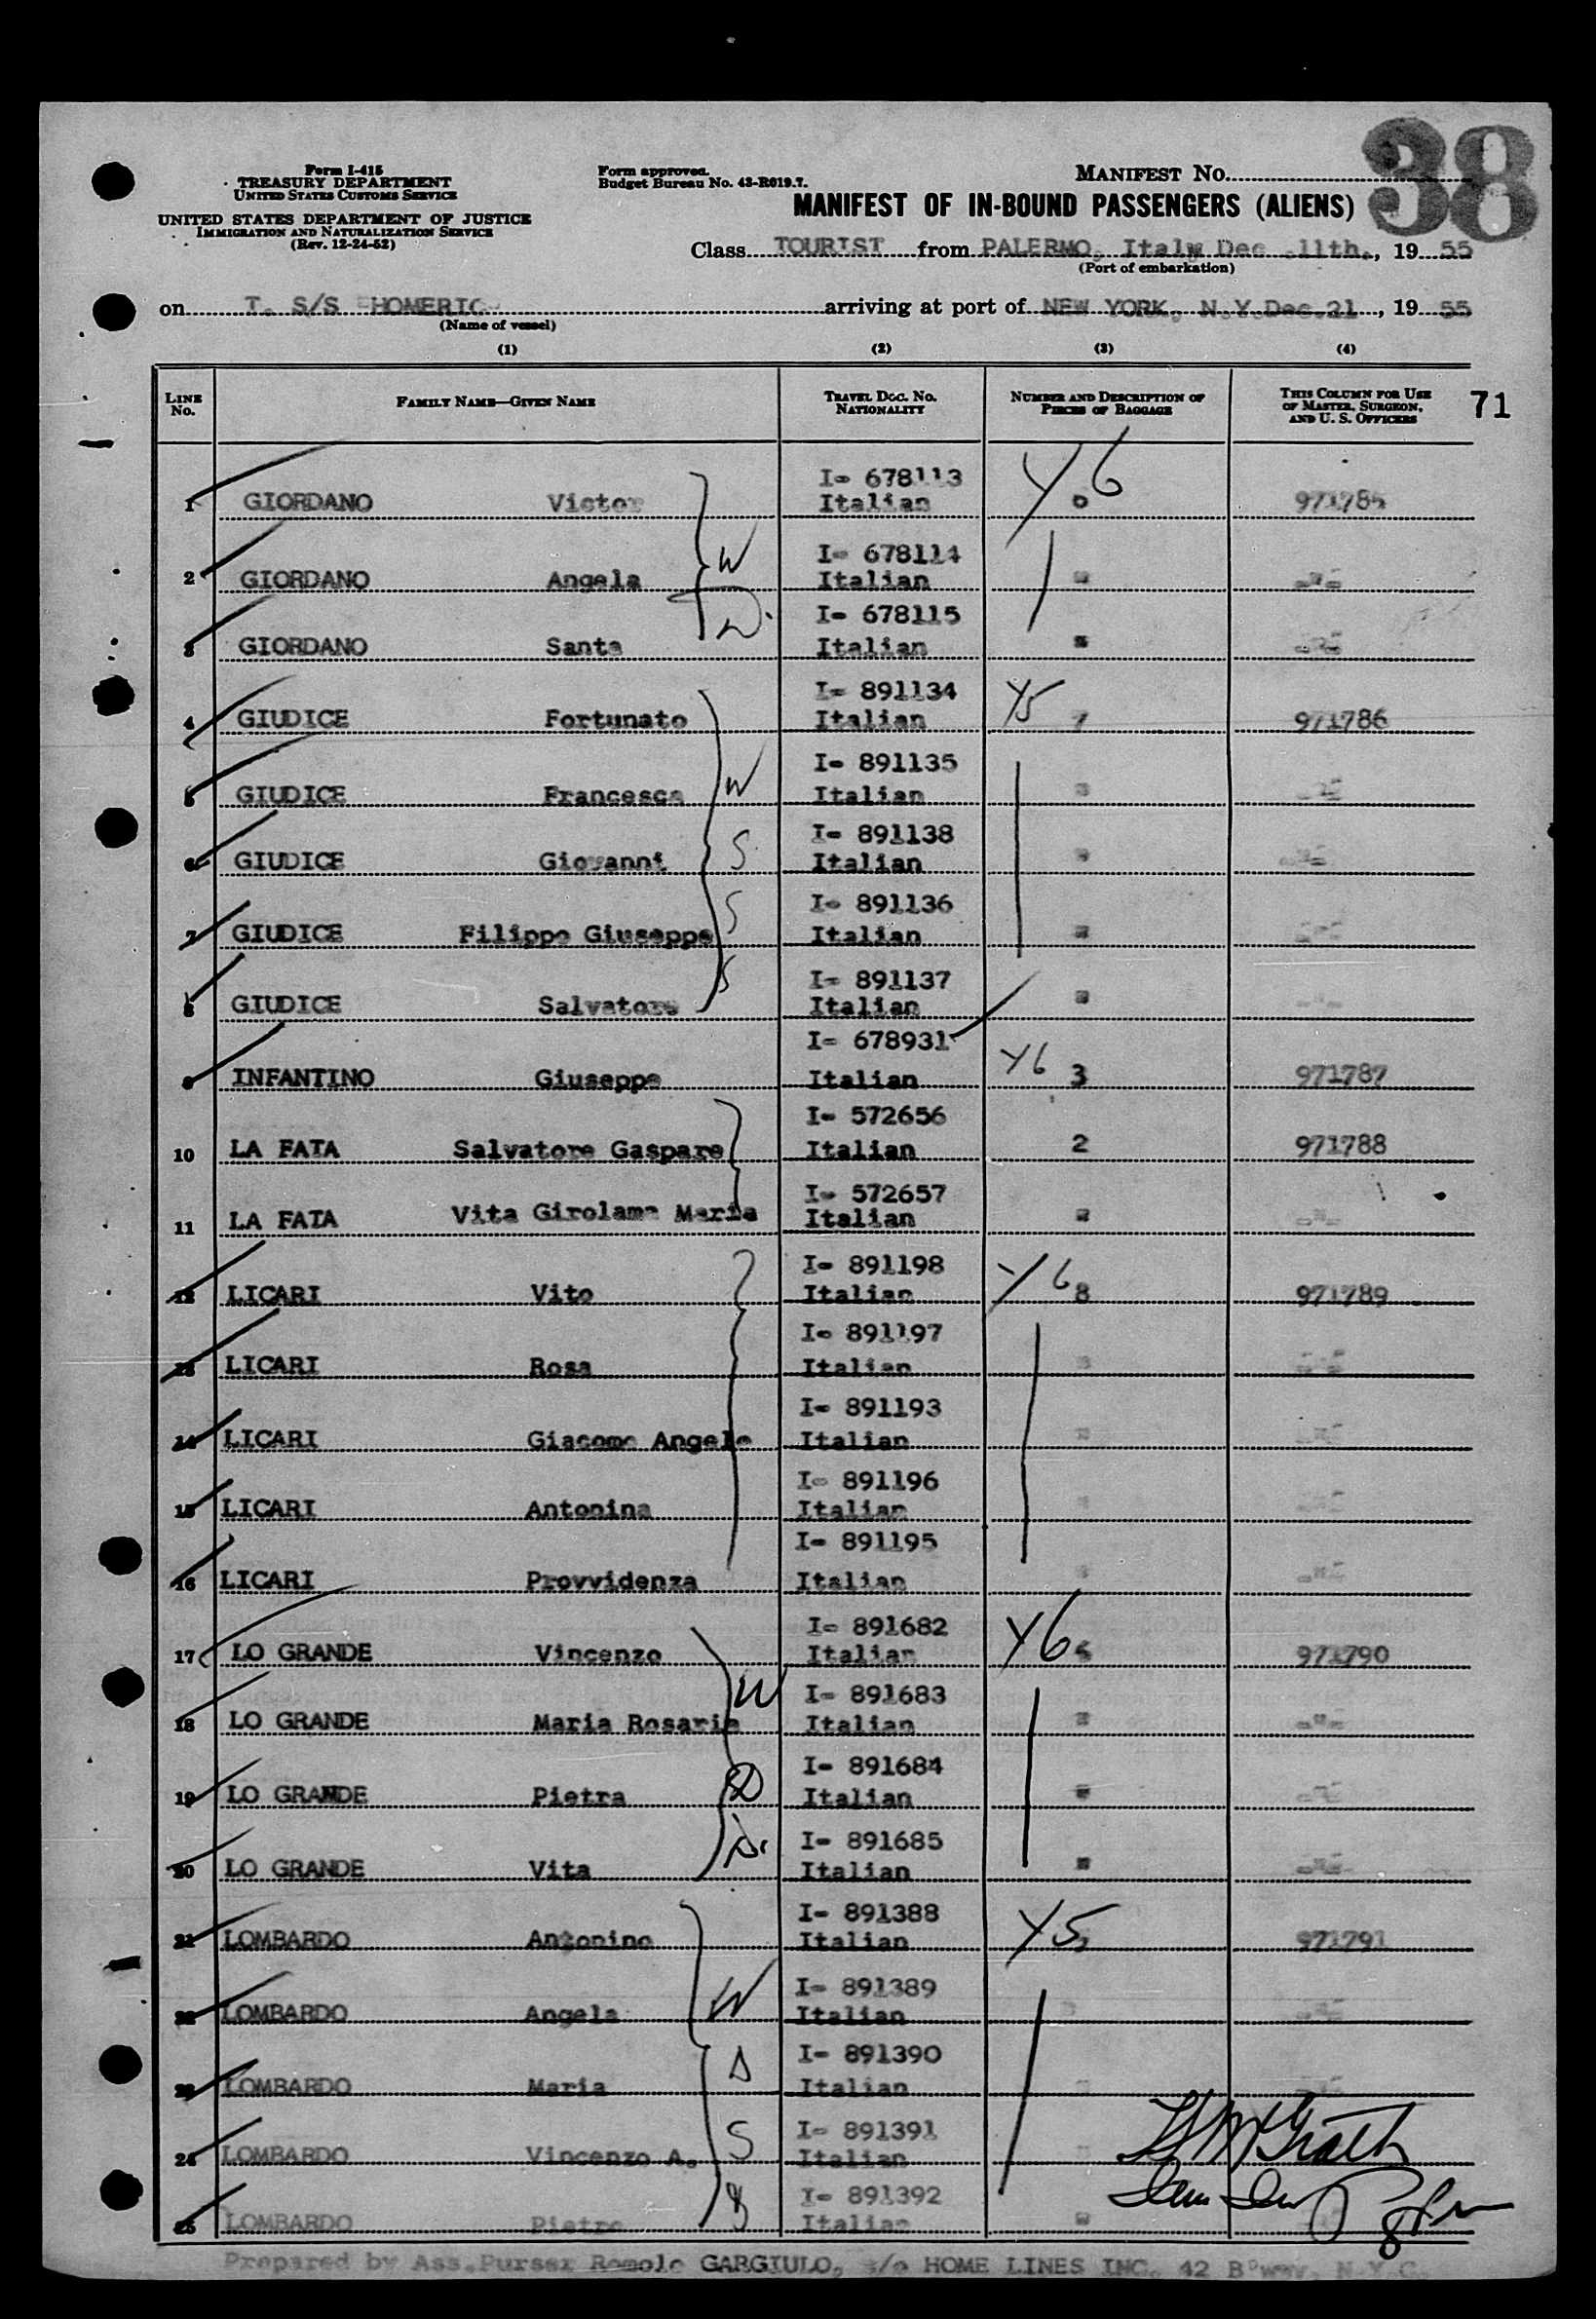 38
Form I-415
TREASURY DEPARTMENT
UNITED STATES CUSTOMS SERVICE
UNITED STATES DEPARTMENT OF JUSTICE
IMMIGRATION AND NATURALIZATION SERVICE
(Rev. 12-24-52)
Form approved.
Budget Bureau No. 43-R019.7.
MANIFEST NO.
MANIFEST OF IN-BOUND PASSENGERS (ALIENS)
Class TOURIST from PALERMO, Italy Dec .11th., 19 55
(Port of embarkation)
on T. S/S HOMERIC arriving at port of NEW YORK, N.Y.Dec.21, 19 55
(Name of vessel)
(1) (2) (3) (4)
LINE NO. FAMILY NAME—GIVEN NAME TRAVEL DOC. NO. NATIONALITY NUMBER AND DESCRIPTION OF PIECES OF BAGGAGE THIS COLUMN FOR USE OF MASTER, SURGEON, AND U. S. OFFICERS 71
I- 678113 Y6
1 GIORDANO Victor Italian 971785
W I- 678114
2 GIORDANO Angela Italian " -"-
D. I- 678115
3 GIORDANO Santa Italian " -"-
I- 891134 Y5
4 GIUDICE Fortunato Italian 7 971786
W I- 891135
5 GIUDICE Francesca Italian " -"-
S I- 891138
6 GIUDICE Giovanni Italian " -"-
S I- 891136
7 GIUDICE Filippo Giuseppe Italian " -"-
S I- 891137
8 GIUDICE Salvatore Italian " -"-
I- 678931 Y6
9 INFANTINO Giuseppe Italian 3 971787
I- 572656
10 LA FATA Salvatore Gaspare Italian 2 971788
I- 572657
11 LA FATA Vita Girolama Maria Italian " -"-
I- 891198 Y6
12 LICARI Vito Italian 8 971789
I- 891197
13 LICARI Rosa Italian " -"-
I- 891193
14 LICARI Giacomo Angelo Italian " -"-
I- 891196
15 LICARI Antonina Italian " -"-
I- 891195
16 LICARI Provvidenza Italian " -"-
I- 891682 Y6
17 LO GRANDE Vincenzo Italian 971790
W I- 891683
18 LO GRANDE Maria Rosaria Italian " -"-
D I- 891684
19 LO GRANDE Pietra Italian " -"-
D. I- 891685
20 LO GRANDE Vita Italian " -"-
I- 891388 Y5
21 LOMBARDO Antonino Italian 971791
W I- 891389
22 LOMBARDO Angela Italian " -"-
D I- 891390
23 LOMBARDO Maria Italian " -"-
S I- 891391
24 LOMBARDO Vincenzo A. Italian
I- 891392
25 LOMBARDO Pietro Italian "
Prepared by Ass.Purser Romolo GARGIULO, c/o HOME LINES INC. 42 B'way, N.Y.C.